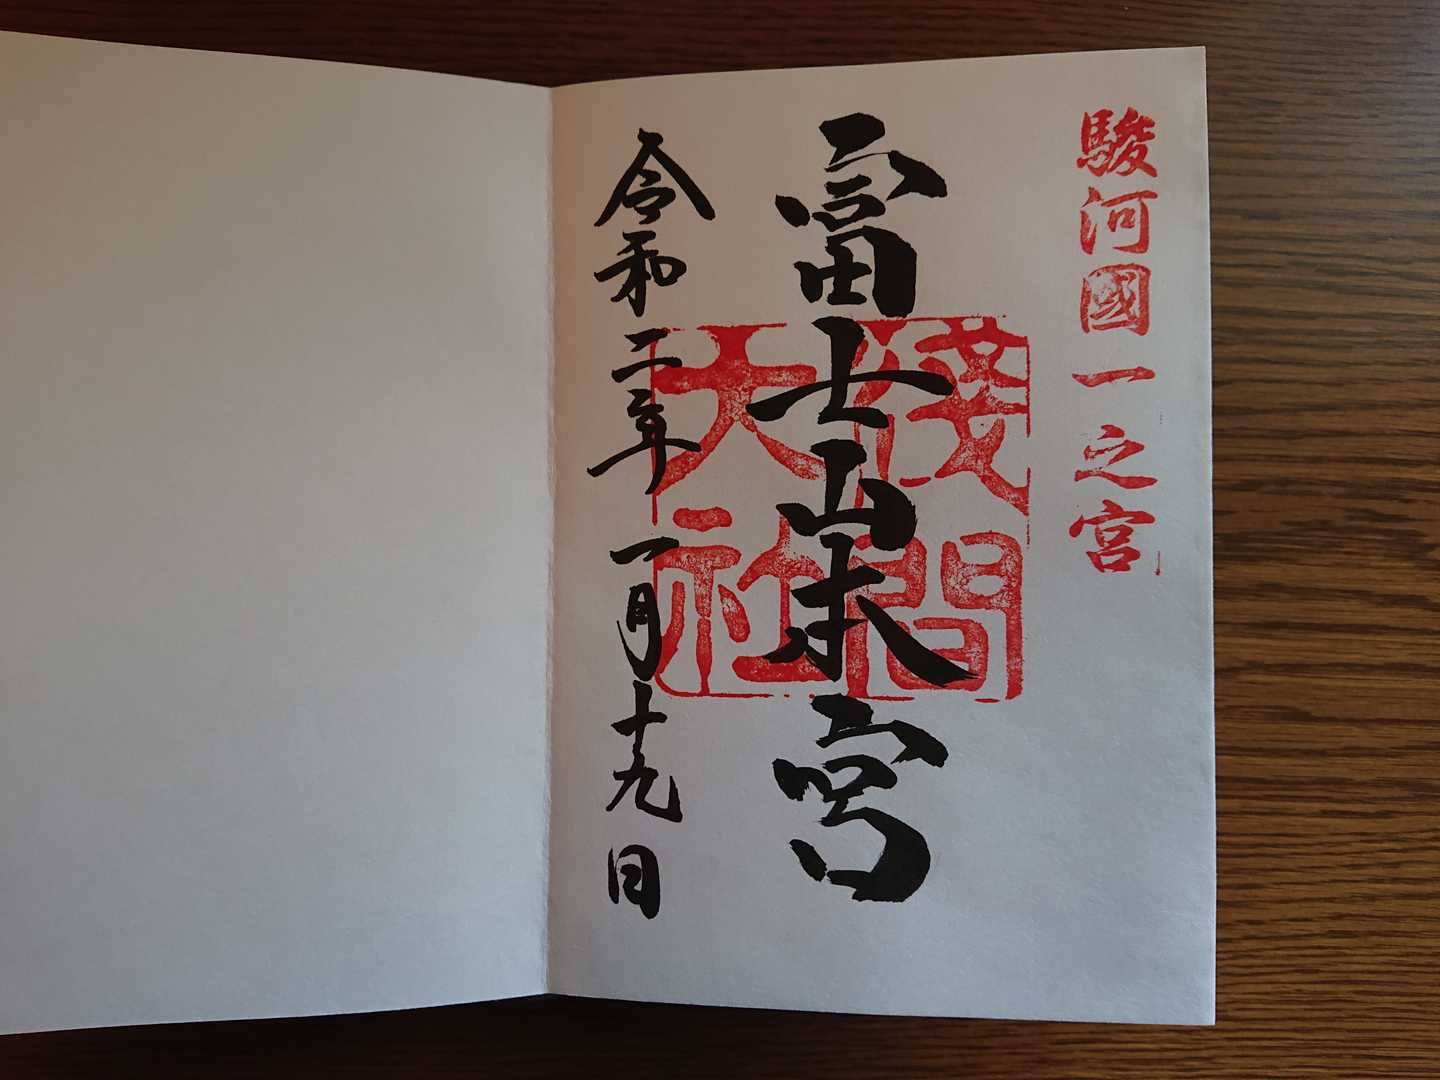 駿河國一之宮
富士山本宮
淺間
大社
令和二年一月十九日